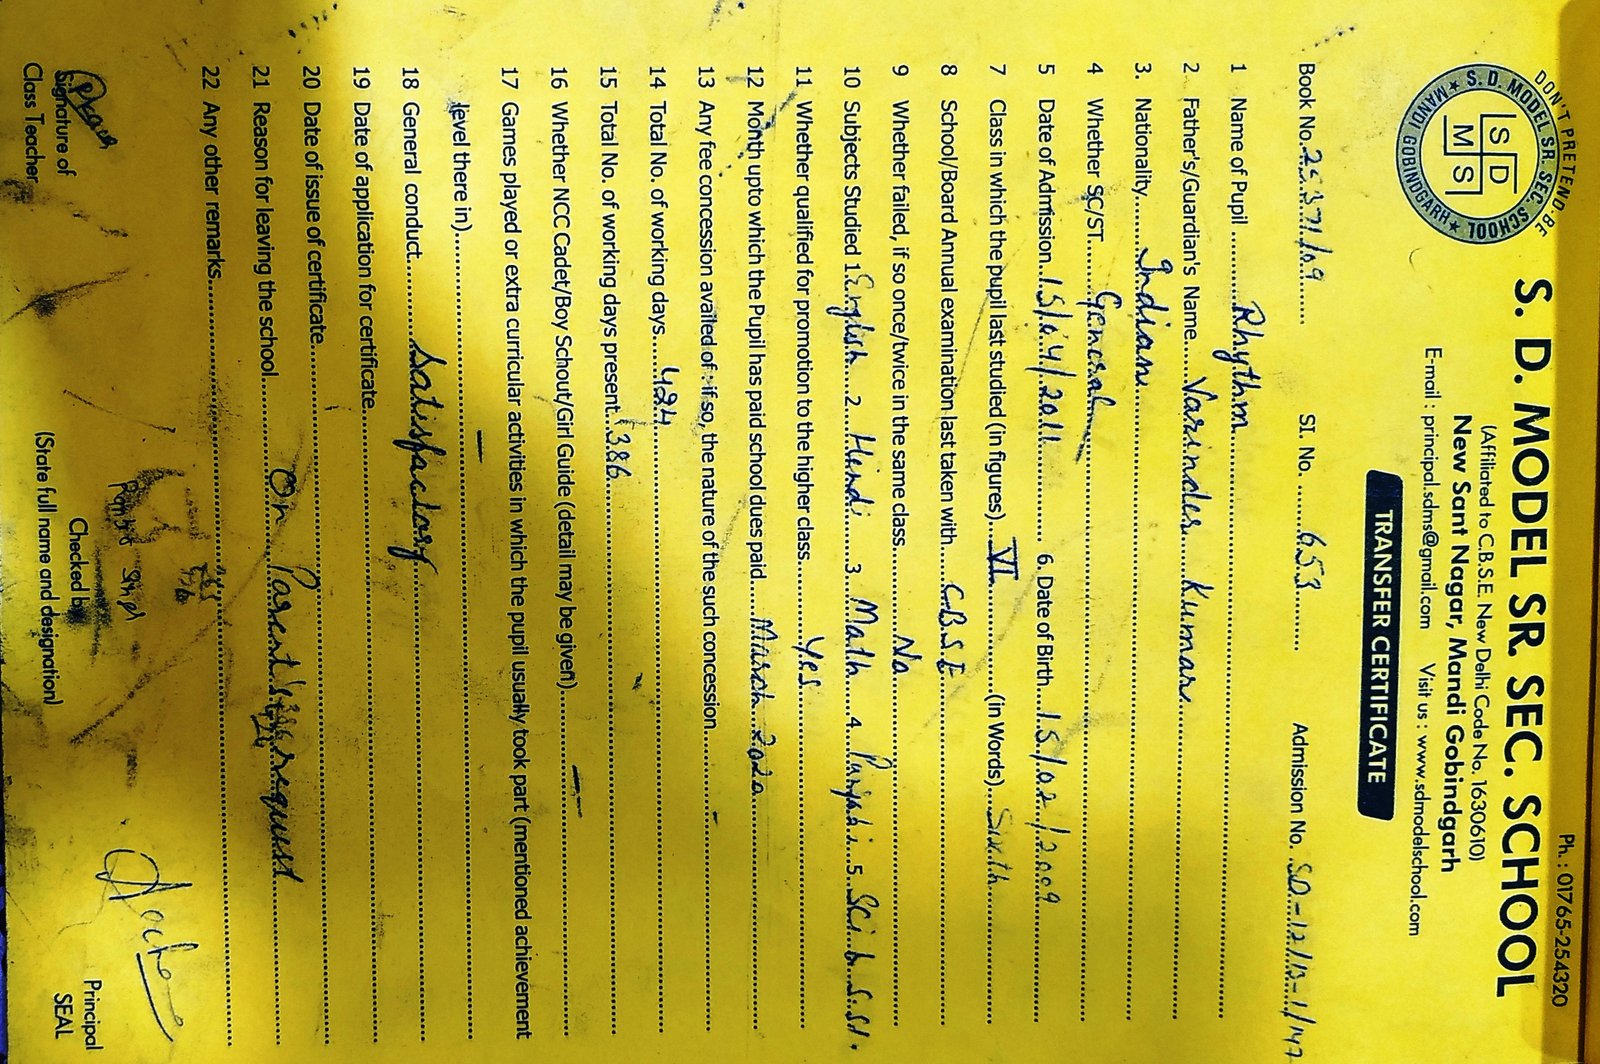 Ph. : 01765-254320
DON'T PRETEND, BE
S. D. MODEL SR. SEC. SCHOOL
★ MANDI GOBINDGARH ★
S D
M S
S. D. MODEL SR SEC. SCHOOL
(Affiliated to C.B.S.E. New Delhi Code No. 1630610)
New Sant Nagar, Mandi Gobindgarh
E-mail : principal.sdms@gmail.com Visit us : www.sdmodelschool.com
TRANSFER CERTIFICATE
Book No. 25371/09 Sl. No. 653 Admission No. SD-12/13-1/147
1 Name of Pupil Rhythm
2 Father's/Guardian's Name Varinder Kumar
3. Nationality Indian
4 Whether SC/ST General
5 Date of Admission 15/04/2011 6. Date of Birth 15/02/2009
7 Class in which the pupil last studied (in figures) VI (in Words) Sixth
8 School/Board Annual examination last taken with C.B.S.E
9 Whether failed, if so once/twice in the same class No
10 Subjects Studied 1. English 2. Hindi 3. Math 4. Punjabi 5. Sci 6. S.St.
11 Whether qualified for promotion to the higher class Yes
12 Month upto which the Pupil has paid school dues paid March 2020
13 Any fee concession availed of : if so, the nature of the such concession -
14 Total No. of working days 424
15 Total No. of working days present 386
16 Whether NCC Cadet/Boy Schout/Girl Guide (detail may be given) —
17 Games played or extra curricular activities in which the pupil usually took part (mentioned achievement
level there in) —
18 General conduct Satisfactory
19 Date of application for certificate
20 Date of issue of certificate
21 Reason for leaving the school On Parent's request
22 Any other remarks
Signature of
Class Teacher
Checked by
(State full name and designation)
Principal
SEAL